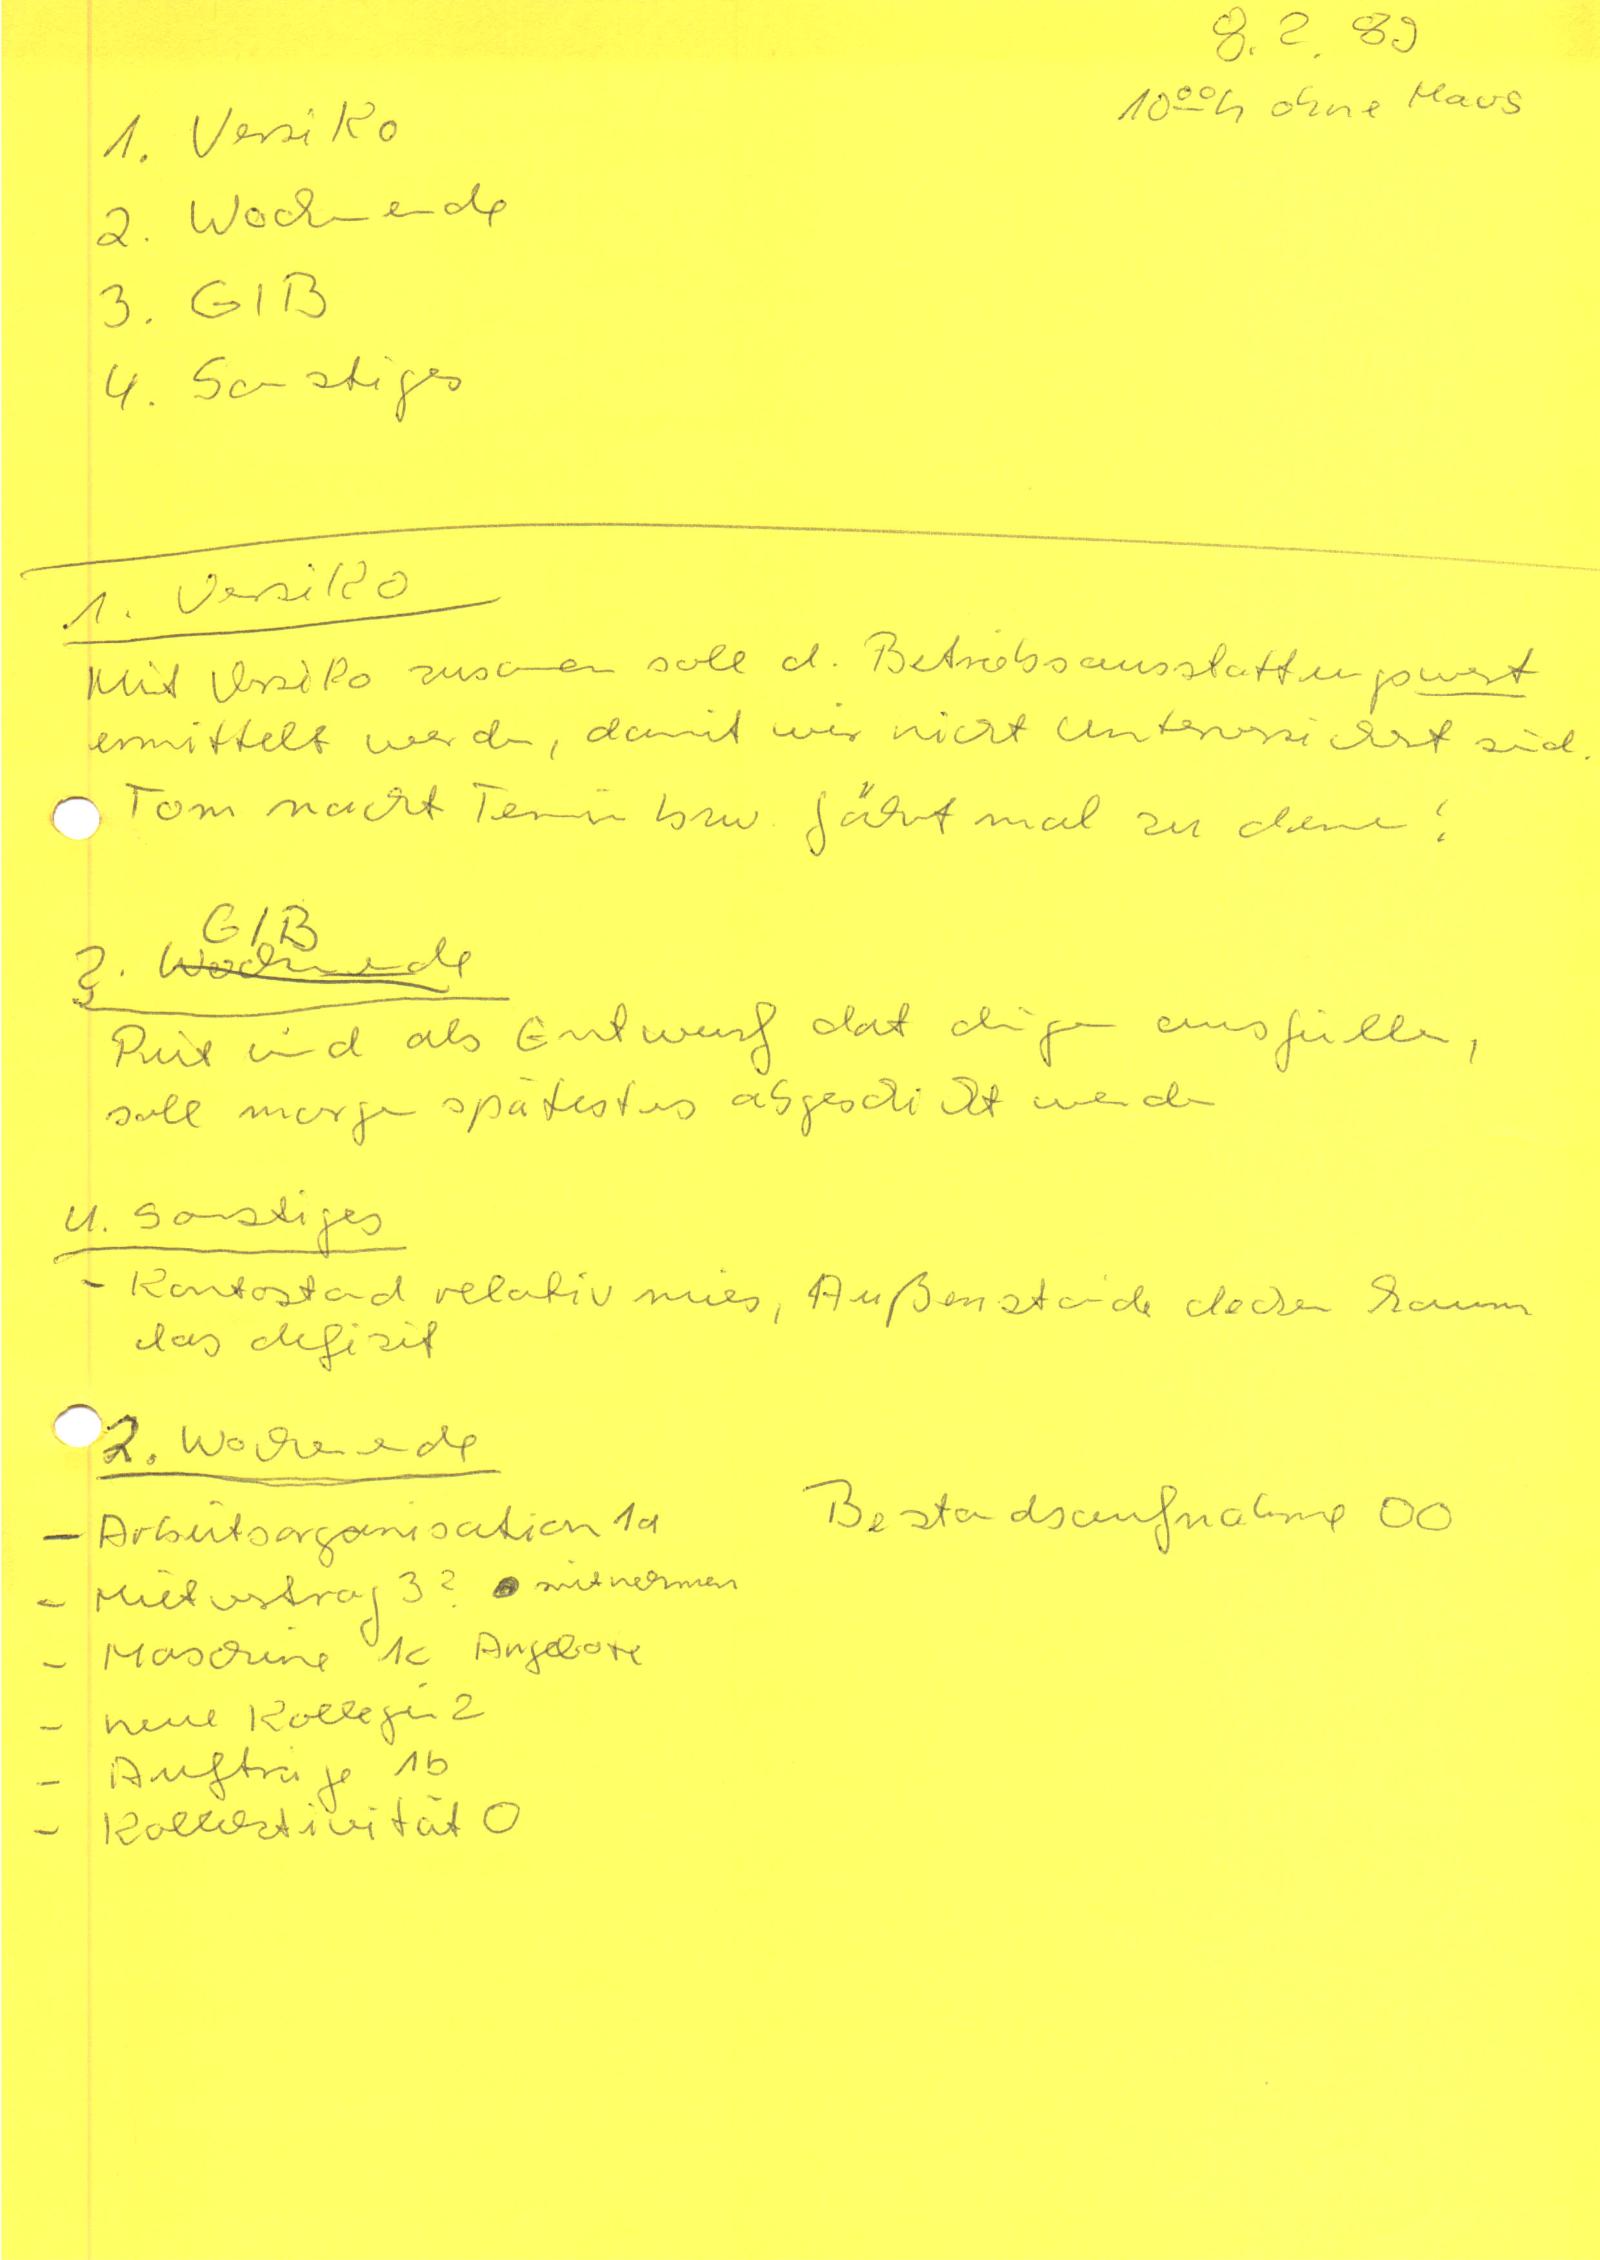 8.2.89
10⁰⁰h ohne Maus
1. Versiko
2. Wochenende
3. GIB
4. Sonstiges
1. Versiko
Mit Versiko zusammen soll d. Betriebsausstattungswert
ermittelt werden, damit wir nicht unterversichert sind.
Tom macht Termin bzw. fährt mal zu denen!
GIB
3. Wochenende
wird als Entwurf dat dingen ausfüllen,
soll morgen spätestens abgeschickt werden
4. Sonstiges
- Kontostand relativ mies, Außenstände decken kaum
das defizit
2. Wochenende
- Arbeitsorganisation 1a
Bestandsaufnahme 00
- Mietvertrag 3? mitnehmen
- Maschine 1c Angebote
- neue Kollegin 2
- Aufträge 1b
- Kollektivität 0